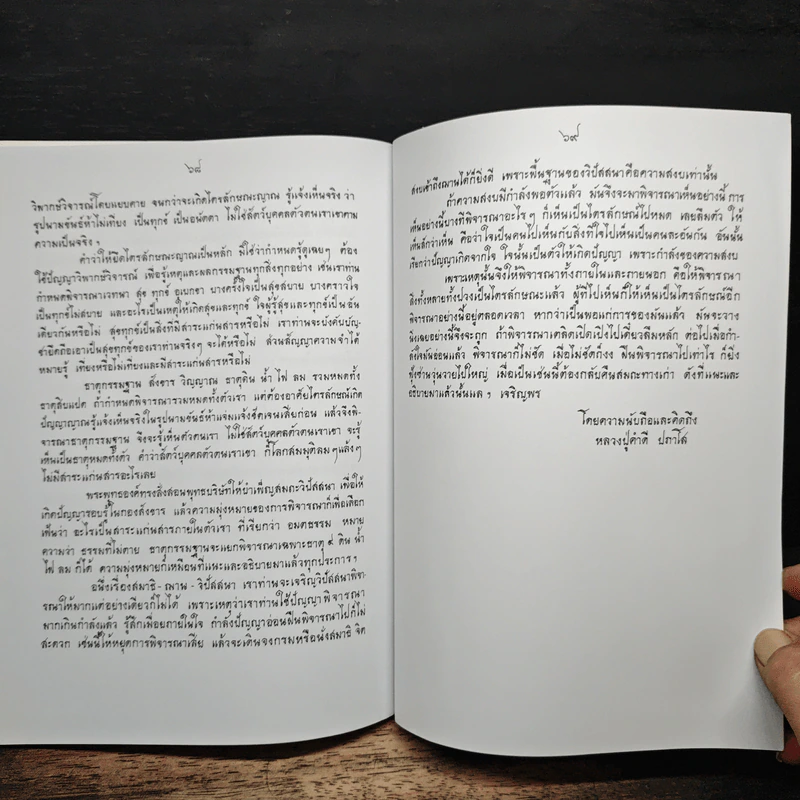 ๖๘
วิพากษ์วิจารณ์โดยแยบคาย จนกว่าจะเกิดไตรลักษณะญาณ รู้แจ้งเห็นจริง ว่า
รูปนามขันธ์ห้าไม่เที่ยง เป็นทุกข์ เป็นอนัตตา ไม่ใช่สัตว์บุคคลตัวตนเราเขาตาม
ความเป็นจริงฯ
คำว่าให้ยึดไตรลักษณะญาณเป็นหลัก มิใช่ว่ากำหนดรู้ดูเฉยๆ ต้อง
ใช้ปัญญาวิพากษ์วิจารณ์ เพื่อรู้เหตุและผลกรรมฐานทุกสิ่งทุกอย่าง เช่นเราท่าน
กำหนดพิจารณาเวทนา สุข ทุกข์ อุเบกขา บางครั้งใจเป็นสุขสบาย บางคราวใจ
เป็นทุกข์ไม่สบาย และอะไรเป็นเหตุให้เกิดสุขและทุกข์ ใจผู้รู้สุขและทุกข์เป็นอัน
เดียวกันหรือไม่ สุขทุกข์เป็นสิ่งที่มีสาระแก่นสารหรือไม่ เราท่านจะบังคับบัญ-
ชายึดถือเอาเป็นสุขทุกข์ของเราท่านจริงๆ จะได้หรือไม่ ส่วนสัญญาความจำได้
หมายรู้ เที่ยงหรือไม่เที่ยงและมีสาระแก่นสารหรือไม่
ธาตุกรรมฐาน สังขาร วิญญาณ ธาตุดิน น้ำ ไฟ ลม รวมหมดทั้ง
ธาตุสิบแปด ถ้ากำหนดพิจารณารวมหมดทั้งตัวเรา แต่ต้องอาศัยไตรลักษณ์เกิด
ปัญญาญาณรู้แจ้งเห็นจริงในรูปนามขันธ์ห้าแจ่มแจ้งชัดเจนเสียก่อน แล้วจึงพิ-
จารณาธาตุกรรมฐาน จึงจะรู้เห็นตัวตนเรา ไม่ใช่สัตว์บุคคลตัวตนเราเขา จะรู้
เห็นเป็นธาตุหมดทั้งตัว คำว่าสัตว์บุคคลตัวตนเราเขา ก็โลกสมมุติลมๆแล้งๆ
ไม่มีสาระแก่นสารอะไรเลย
พระพุทธองค์ทรงสั่งสอนพุทธบริษัทให้บำเพ็ญสมถะวิปัสสนา เพื่อให้
เกิดปัญญารอบรู้ในกองสังขาร แล้วความมุ่งหมายของการพิจารณาก็เพื่อเลือก
เฟ้นว่า อะไรเป็นสาระแก่นสารภายในตัวเรา ที่เรียกว่า อมตธรรม หมาย
ความว่า ธรรมที่ไม่ตาย ธาตุกรรมฐานจะแยกพิจารณาเฉพาะธาตุ ๔ ดิน น้ำ
ไฟ ลม ก็ได้ ความมุ่งหมายก็เหมือนที่แนะและอธิบายมาแล้วทุกประการฯ
อนึ่งเรื่องสมาธิ-ฌาน-วิปัสสนา เราท่านจะเจริญวิปัสสนาพิจา-
รณาให้มากแต่อย่างเดียวก็ไม่ได้ เพราะเหตุว่าเราท่านใช้ปัญญาพิจารณา
มากเกินกำลังแล้ว รู้สึกเมื่อยภายในใจ กำลังปัญญาอ่อนฝืนพิจารณาไปก็ไม่
สะดวก เช่นนี้ให้หยุดการพิจารณาเสีย แล้วจะเดินจงกรมหรือนั่งสมาธิ จิต
๖๙
สงบเข้าถึงฌานได้ก็ยิ่งดี เพราะพื้นฐานของวิปัสสนาคือความสงบเท่านั้น
ถ้าความสงบมีกำลังพอตัวแล้ว มันจึงจะมาพิจารณาเห็นอย่างนี้ การ
เห็นอย่างนี้บางทีพิจารณาอะไรๆ ก็เห็นเป็นไตรลักษณ์ไปหมด เลยลืมตัว ให้
เห็นลึกว่าเห็น คือว่าใจเป็นคนไปเห็นกับสิ่งที่ใจไปเห็นเป็นคนละอันกัน อันนั้น
เรียกว่าปัญญาเกิดจากใจ ใจนั้นเป็นตัวให้เกิดปัญญา เพราะกำลังของความสงบ
เพราะเหตุนั้นจึงให้พิจารณาทั้งภายในและภายนอก คือให้พิจารณา
สิ่งทั้งหลายทั้งปวงเป็นไตรลักษณะแล้ว ผู้ที่ไปเห็นก็ให้เห็นเป็นไตรลักษณ์อีก
พิจารณาอย่างนี้อยู่ตลอดเวลา หากว่าเป็นพอแก่การของมันแล้ว มันจะวาง
นิ่งเฉยอย่างนี้จึงจะถูก ถ้าพิจารณาเตลิดเปิดเปิงไปเดี๋ยวลืมหลัก ต่อไปเมื่อกำ-
ลังใจมันอ่อนแล้ว พิจารณาก็ไม่ชัด เมื่อไม่ชัดก็งง ฝืนพิจารณาไปเท่าไร ก็ยิ่ง
ฟุ้งซ่านวุ่นวายไปใหญ่ เมื่อเป็นเช่นนี้ต้องกลับคืนสมถะทางเก่า ดังที่แนะและ
อธิบายมาแล้วนั้นแลฯ เจริญพร
โดยความนับถือและคิดถึง
หลวงปู่คำดี ปภาโส